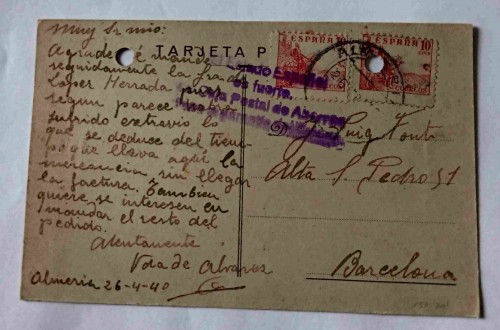 Muy Sr mio:
Agradeceré mande
seguidamente la
Lopez Herrada pues
segun parece
sufrido extravio lo
que se deduce del tiem-
po que lleva aqui la
mercancia sin llegar
la factura. Tambien
quiere se interesen en
mandar el resto del
pedido.
Atentamente
Vda de Alvarez
Almeria 26-4-40
TARJETA P
ESPAÑA 10
CORREOS
ESPAÑA 10
CORREOS
ALM
Estado
es fuerte.
Postal de Ahorros
D. J. Puig Font
Alta S. Pedro 51
Barcelona